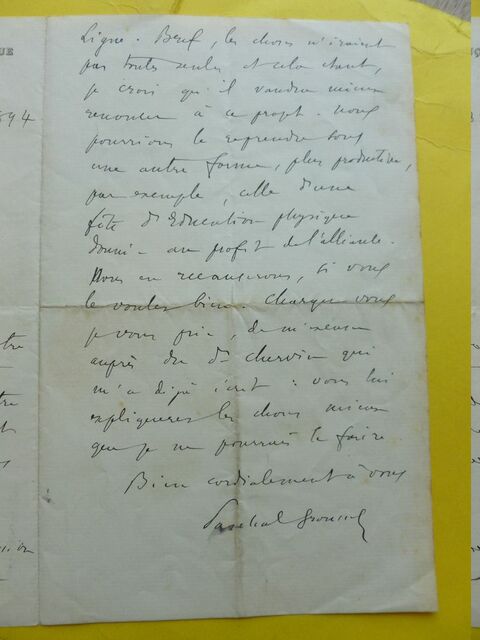 QUE
894
Ligue. Bref, les choses n'iraient
pas toutes seules et cela étant,
je crois qu'il vaudra mieux
renoncer à ce projet. Nous
pourrions le reprendre sous
une autre forme, plus productive,
par exemple, celle d'une
fête d'Education physique
donnée au profit de l'alliance.
Nous en recauserons, si vous
le voulez bien. Chargez vous
je vous prie, de m'excuser
auprès du Dr Chervin qui
m'a déjà écrit : vous lui
expliquerez les choses mieux
que je ne pourrais le faire
Bien cordialement à vous
Paschal Grousset